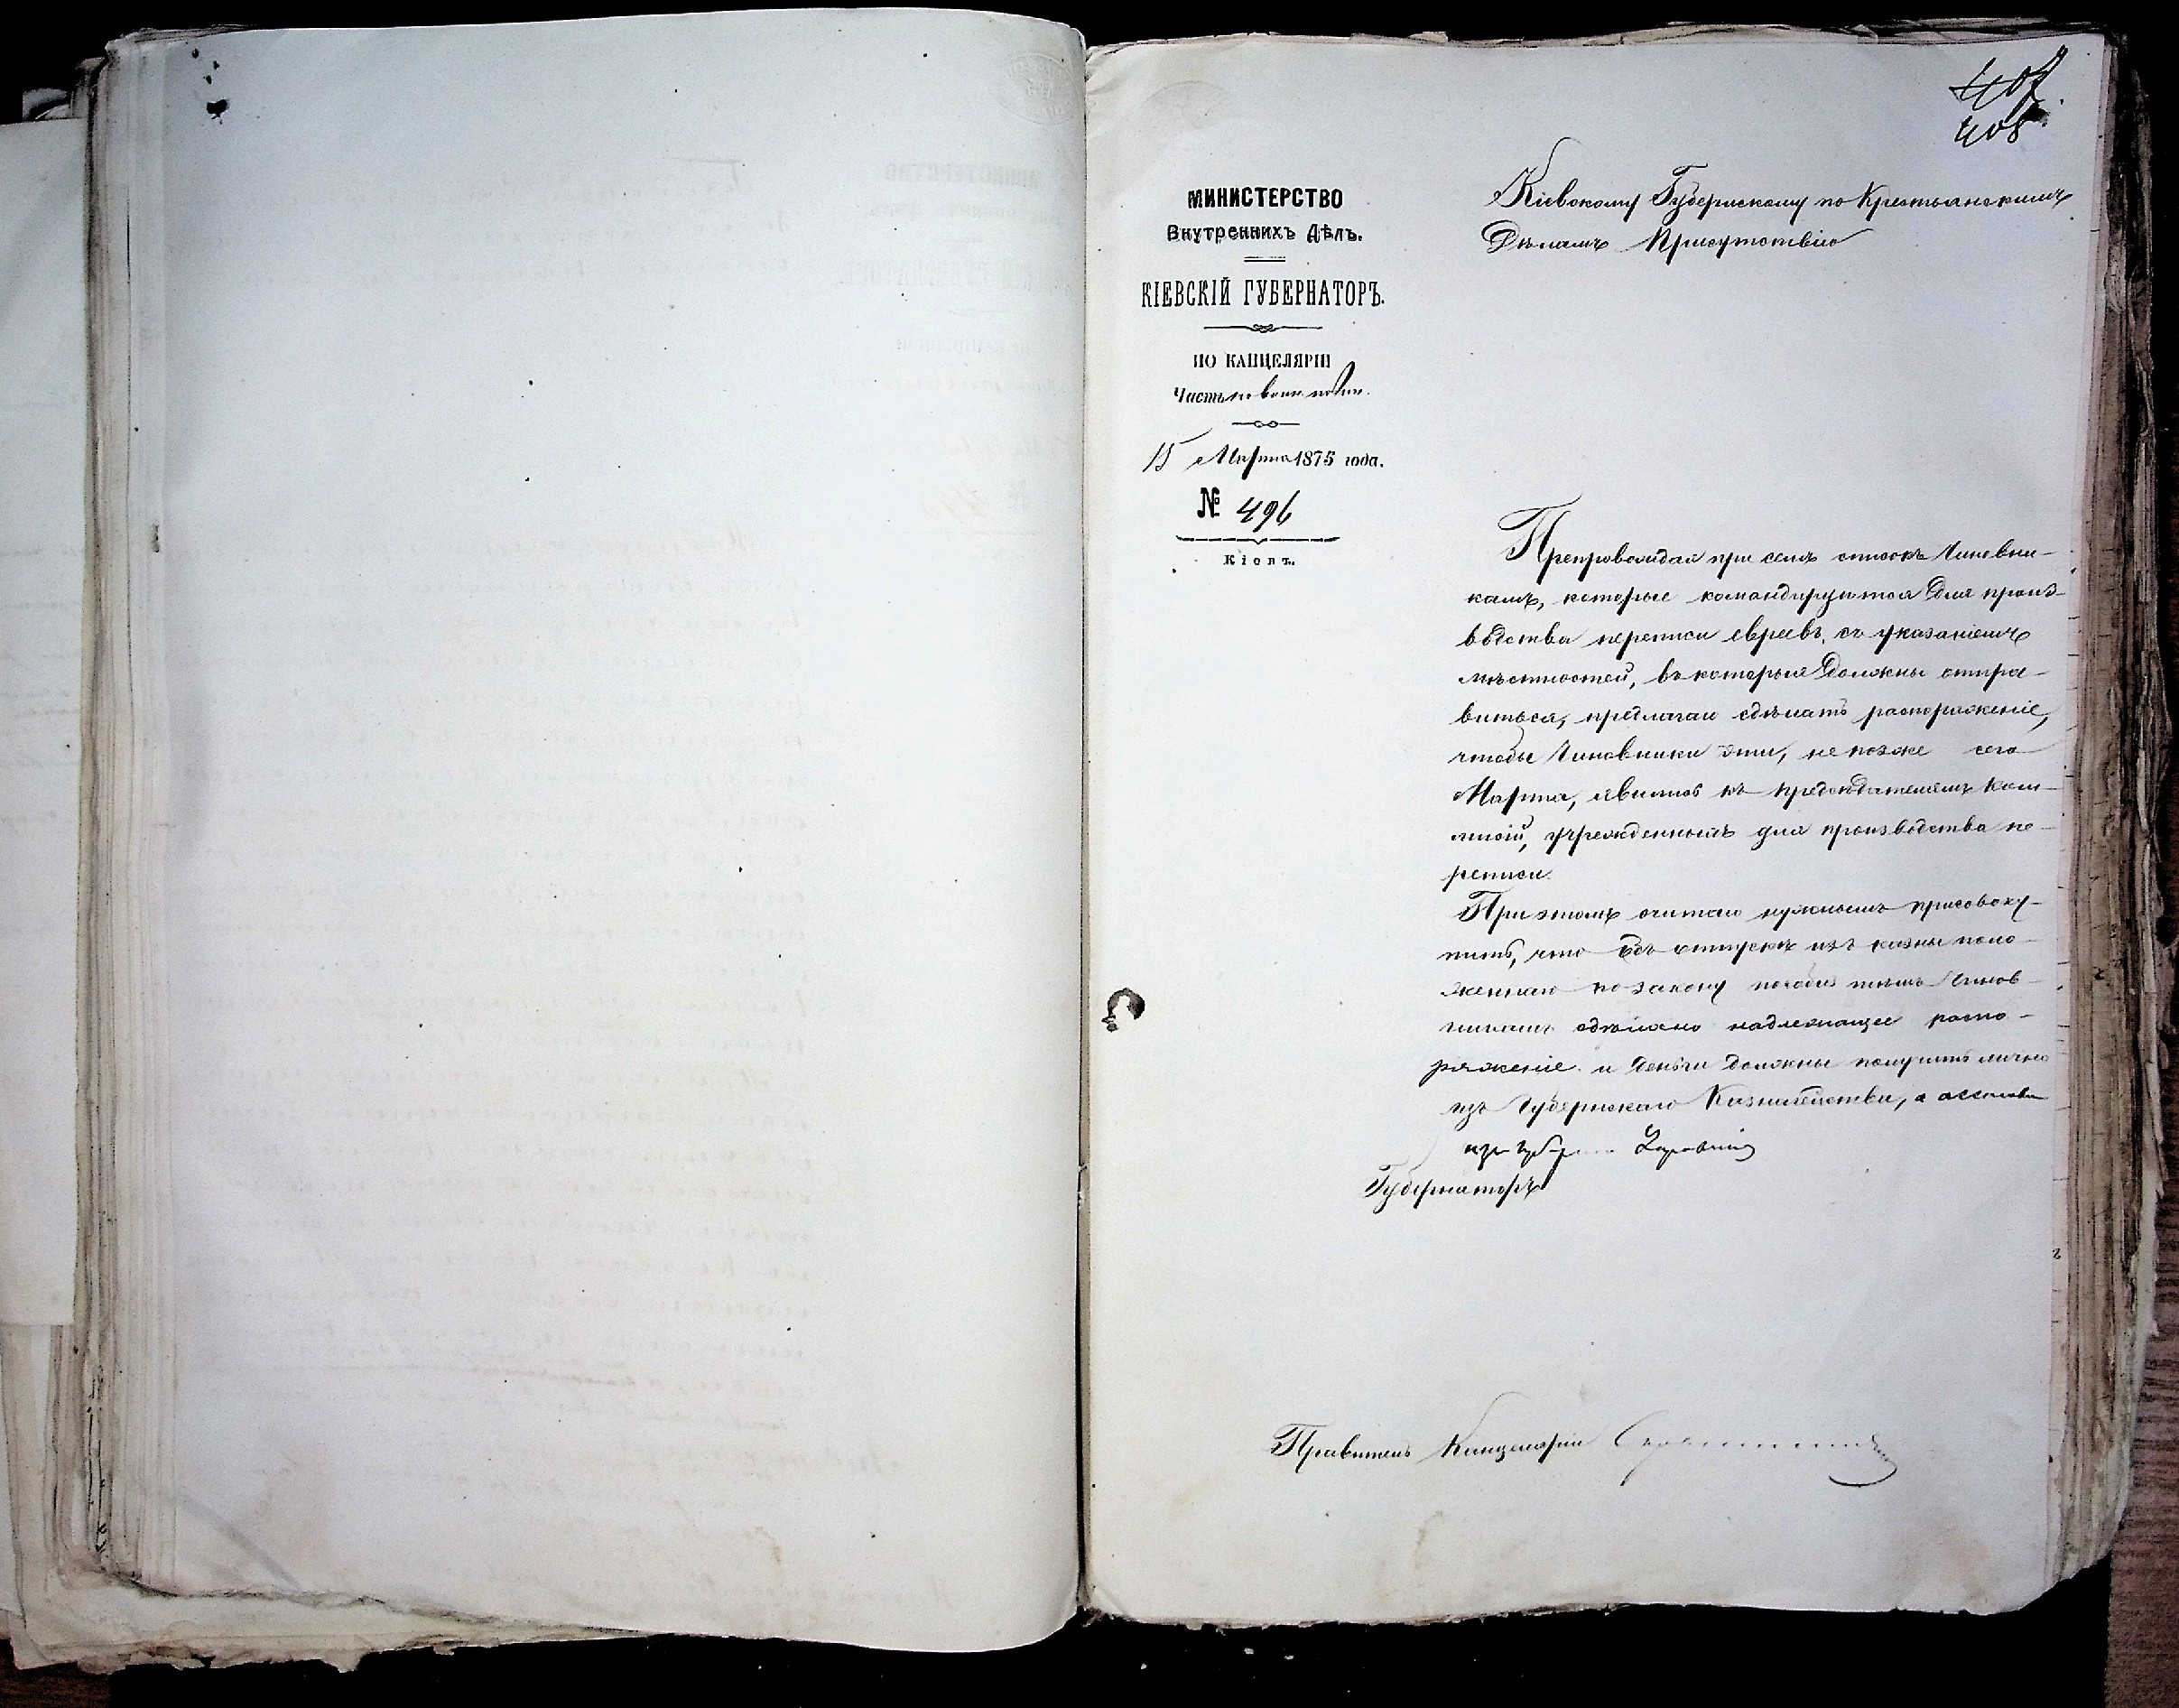 407
408
МИНИСТЕРСТВО
Внутреннихъ Дѣлъ.
КІЕВСКІЙ ГУБЕРНАТОРЪ.
ПО КАНЦЕЛЯРІИ
Часть по воин. повин.
15 Марта 1875 года.
№ 496
Кіевъ.
Кіевскому Губернскому по Крестьянскимъ
Дѣламъ Присутствію
Препровождая при семъ списокъ Чиновни-
камъ, которые командируются для произ-
водства переписи евреевъ, съ указаніемъ
мѣстностей, въ которыя должны отпра-
виться, предлагаю сдѣлать распоряженіе,
чтобы Чиновники эти, не позже сего
Марта, явились къ предсѣдателямъ Ком-
мисій, учрежденныхъ для производства пе-
реписи.
При этомъ считаю нужнымъ присовоку-
пить, что объ отпускѣ изъ казны поло-
женнаго по закону пособія этимъ Чинов-
никамъ сдѣлано надлежащее распо-
ряженіе и деньги должны получить лично
изъ Губернскаго Казначейства, а
изъ
Губернаторъ
Правитель Канцеляріи